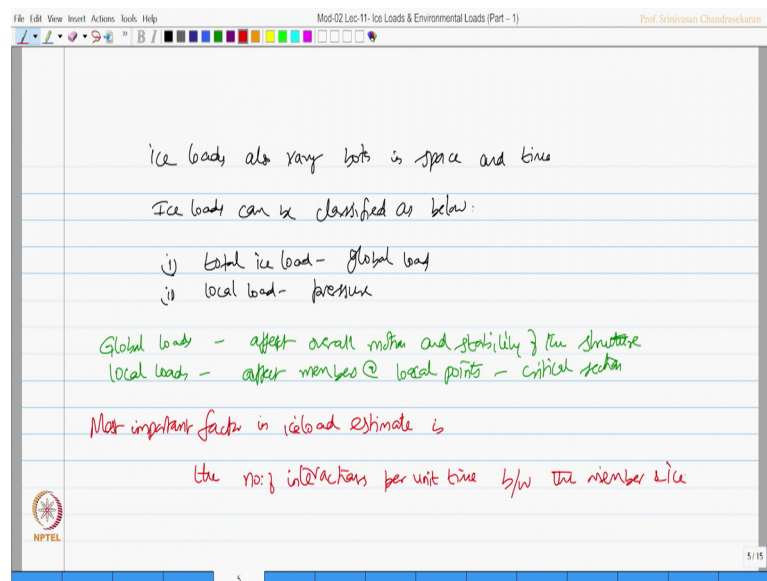 File Edit View Insert Actions Tools Help
Mod-02 Lec-11- Ice Loads & Environmental Loads (Part – 1)
Prof. Srinivasan Chandrasekaran
B I
ice loads also vary both in space and time
Ice loads can be classified as below:
i) total ice load - global load
ii) local load - pressure
Global loads - affect overall motion and stability of the structure
local loads - affect members @ local points - critical section
Most important factor in iceload estimate is
the no: of interactions per unit time b/w the member & ice
NPTEL
5/15
5